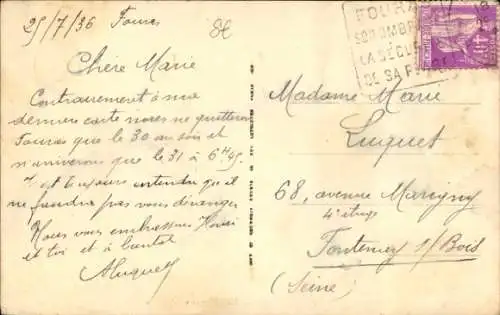 25/7/36 Fouras
Chère Marie
Contrairement à ma
dernière carte nous ne quitterons
Fouras que le 30 au soir et
n'arriverons que le 31 à 6H45.
Il est toujours entendu qu'il
ne faudra pas vous déranger
Nous vous embrassons Henri
et toi et à bientôt
ALuquet
FOURAS
SON OMBR
LA SÉCU
DE SA P
Madame Marie
Luquet
68, avenue Marigny
4e étage
Fontenay s/Bois
(Seine)